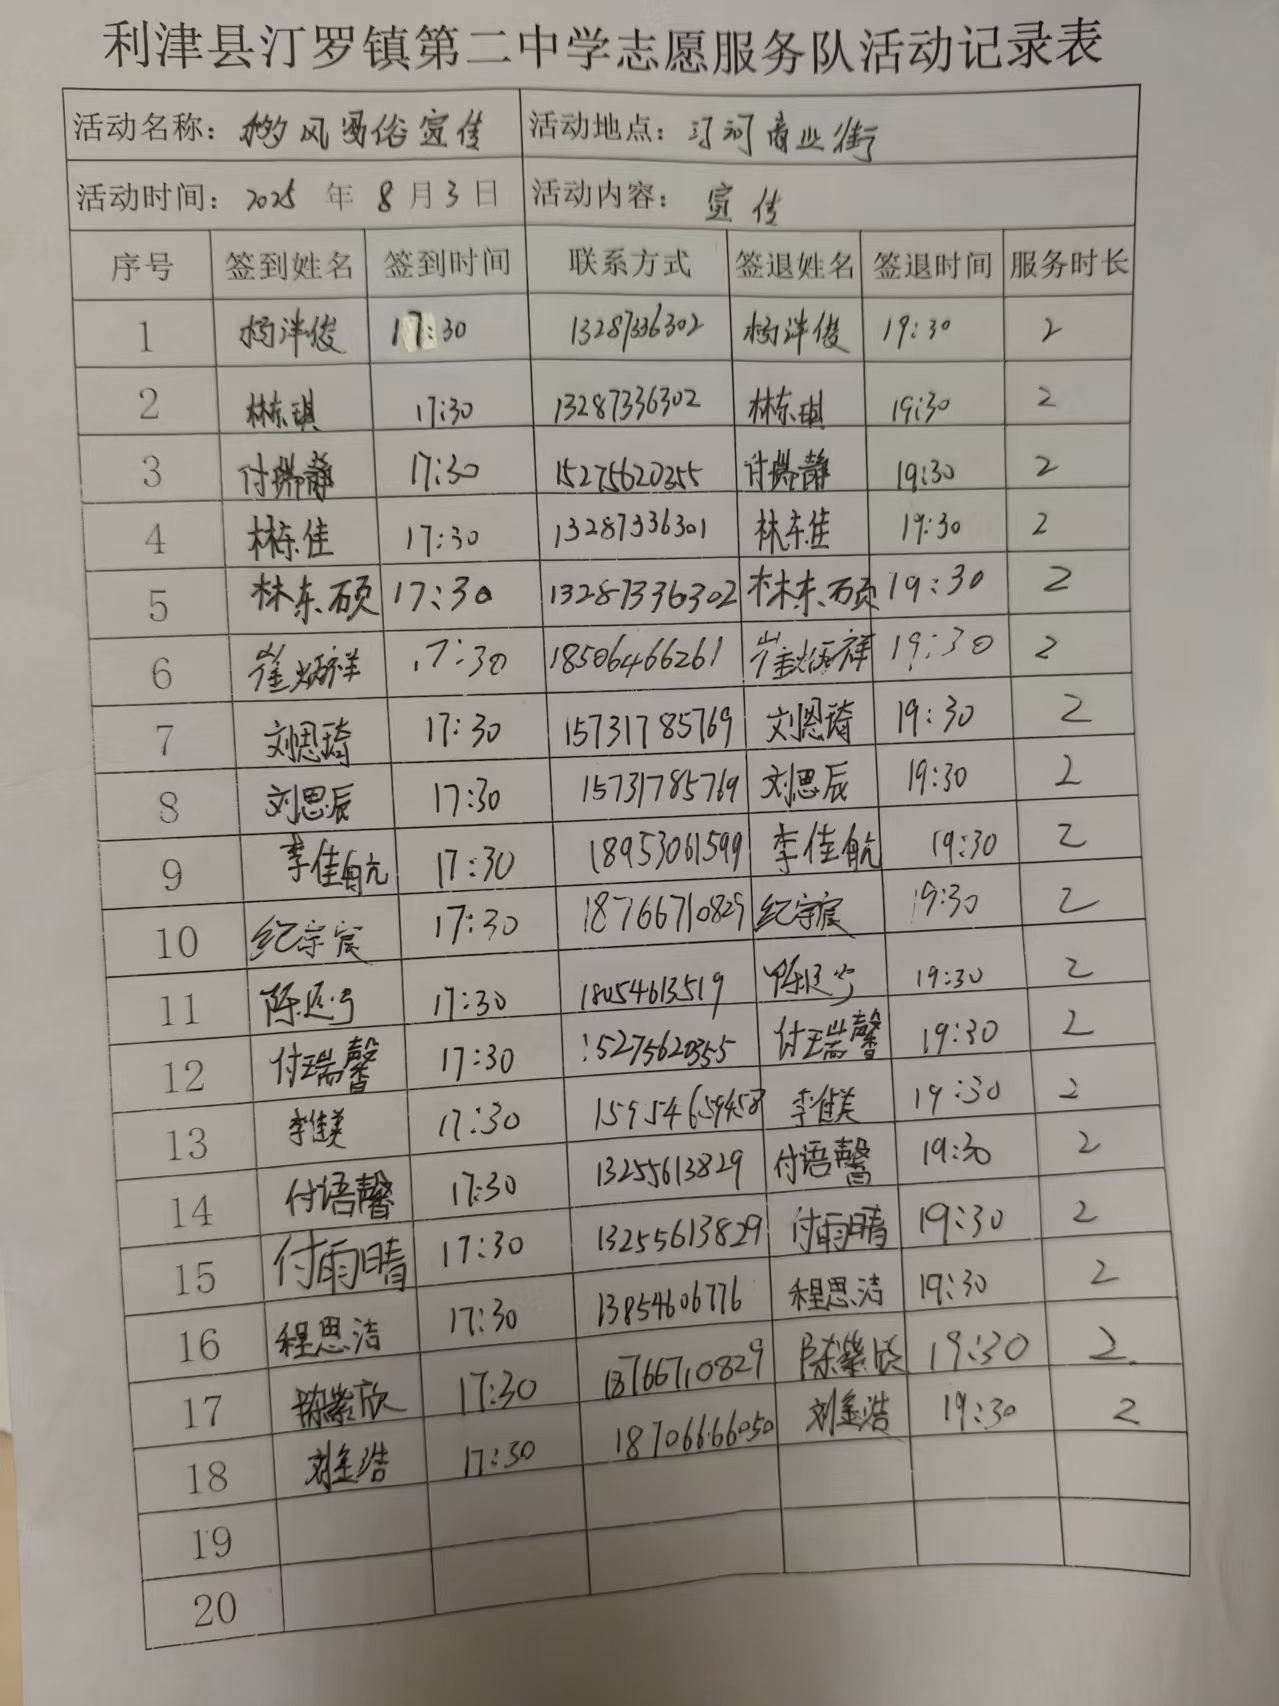 利津县汀罗镇第二中学志愿服务队活动记录表
活动名称：移风易俗宣传 活动地点：汀河商业街
活动时间：2025 年 8 月 3 日 活动内容：宣传
序号 签到姓名 签到时间 联系方式 签退姓名 签退时间 服务时长
1 杨洋俊 17:30 13287336302 杨洋俊 19:30 2
2 林东琪 17:30 13287336302 林东琪 19:30 2
3 付瑞静 17:30 15275620355 付瑞静 19:30 2
4 林东佳 17:30 13287336301 林东佳 19:30 2
5 林东硕 17:30 13287336302 林东硕 19:30 2
6 崔炳祥 17:30 18506466261 崔炳祥 19:30 2
7 刘恩琦 17:30 15731785769 刘恩琦 19:30 2
8 刘思辰 17:30 15731785769 刘思辰 19:30 2
9 李佳航 17:30 18953061599 李佳航 19:30 2
10 纪宗宸 17:30 18766710829 纪宗宸 19:30 2
11 17:30 18054613519 19:30 2
12 付瑞馨 17:30 15275620355 付瑞馨 19:30 2
13 李佳美 17:30 15954659458 李佳美 19:30 2
14 付语馨 17:30 13255613829 付语馨 19:30 2
15 付雨晴 17:30 13255613829 付雨晴 19:30 2
16 程思洁 17:30 13854606776 程思洁 19:30 2
17 陈紫欣 17:30 18766710829 陈紫欣 19:30 2
18 刘金浩 17:30 18706666050 刘金浩 19:30 2
19
20